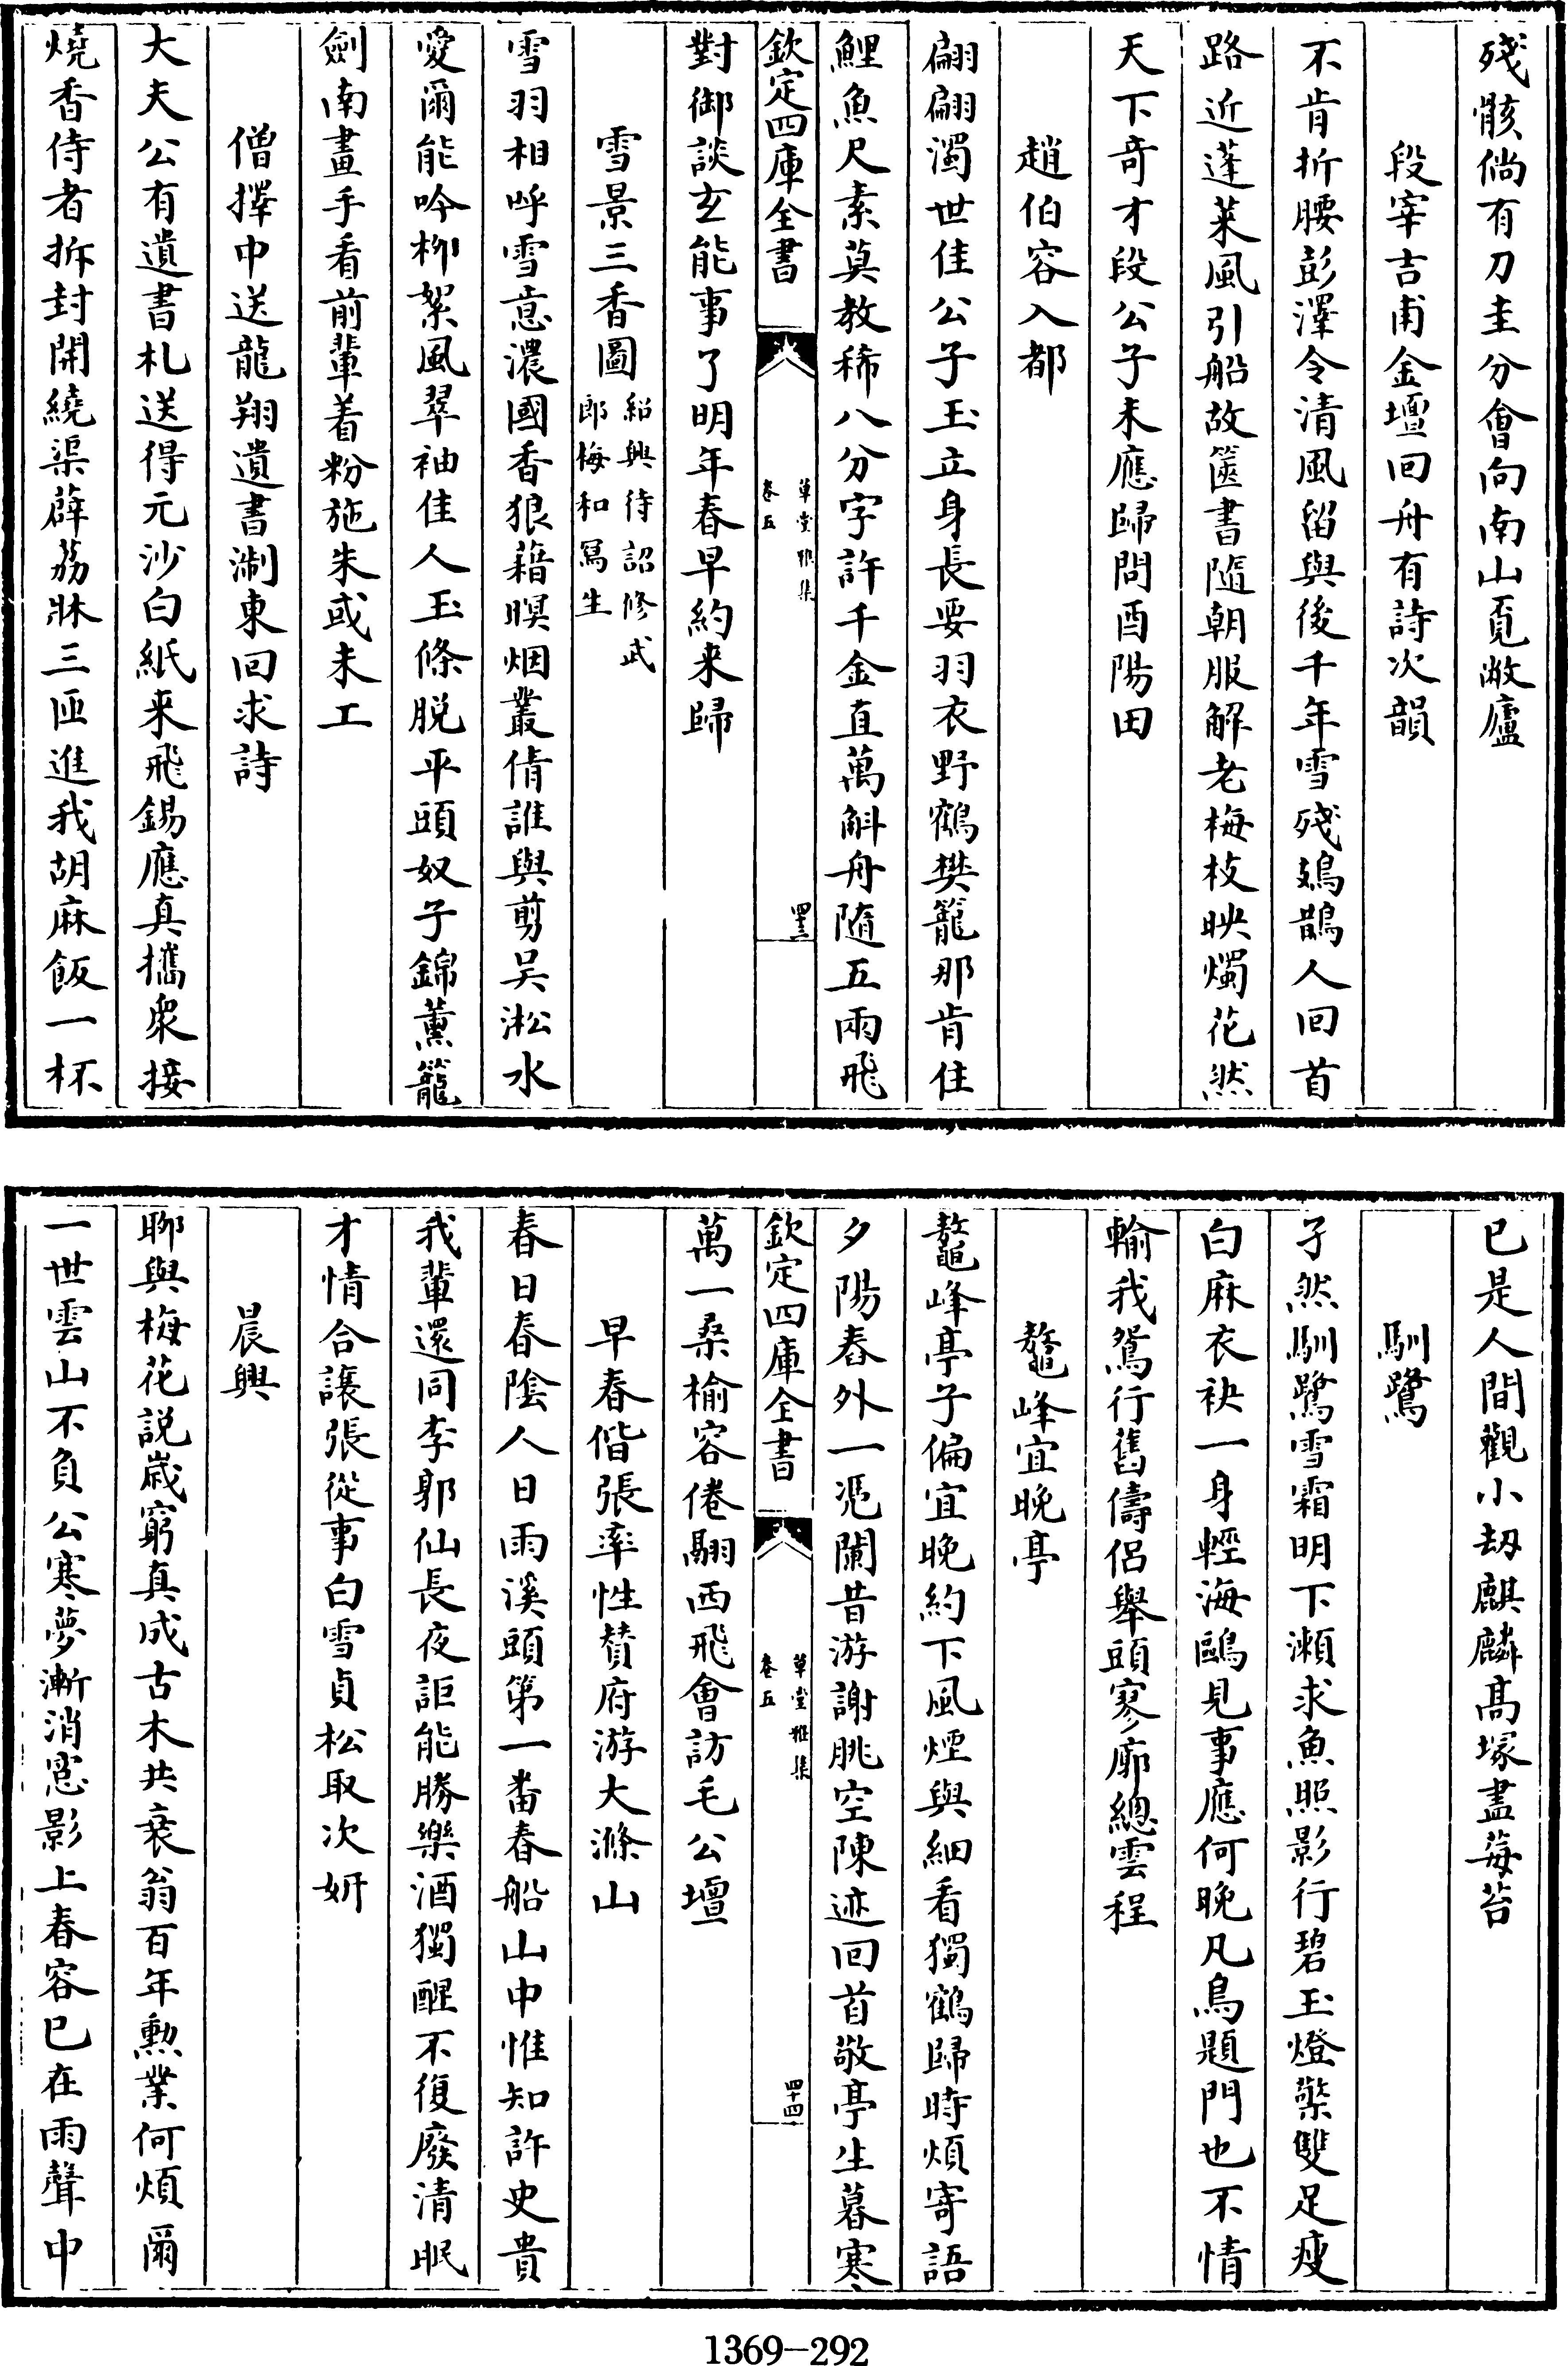 殘骸倘有刀圭分會向南山覓敝廬
段宰吉甫金壇回舟有詩次韻
不肯折腰彭澤令清風留與後千年雪殘鳷鵲人回首
路近蓬萊風引船故篋書隨朝服解老梅枝映燭花然
天下奇才段公子未應歸問酉陽田
趙伯容入都
翩翩濁世佳公子玉立身長要羽衣野鶴樊籠那肯住
鯉魚尺素莫教稀八分字許千金直萬斛舟隨五兩飛
欽定四庫全書
草堂雅集
卷五
四十三
對御談玄能事了明年春早約来歸
雪景三香圖
紹興待詔修武
郎梅和寫生
雪羽相呼雪意濃國香狼藉暝烟叢倩誰與剪吴淞水
愛爾能吟柳絮風翠袖佳人玉條脱平頭奴子錦薰籠
劍南畫手看前輩着粉施朱或未工
僧擇中送龍翔遺書淛東回求詩
大夫公有遺書札送得元沙白紙来飛錫應真攜衆接
燒香侍者拆封開繞渠薜荔牀三匝進我胡麻飯一杯
已是人間觀小刼麒麟髙塚盡莓苔
馴鷺
孑然馴鷺雪霜明下瀬求魚照影行碧玉燈檠雙足瘦
白麻衣袂一身輕海鷗見事應何晚凡鳥題門也不情
輸我鴛行舊儔侣舉頭寥廓總雲程
鼇峰宜晚亭
鼇峰亭子偏宜晚約下風煙與細看獨鶴歸時煩寄語
夕陽舂外一憑闌昔游謝朓空陳迹回首敬亭生暮寒
欽定四庫全書
草堂雅集
卷五
四十四
萬一桑榆容倦翮西飛會訪毛公壇
早春偕張率性賛府游大滌山
春日春隂人日雨溪頭第一畨春船山中惟知許史貴
我輩還同李郭仙長夜詎能勝樂酒獨醒不復廢清眠
才情合讓張從事白雪貞松取次妍
晨興
聊與梅花説嵗窮真成古木共衰翁百年勲業何煩爾
一世雲山不負公寒夢漸消窓影上春容已在雨聲中
1369-292